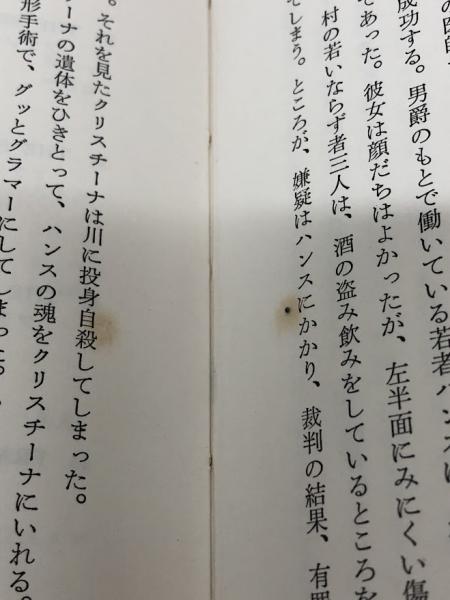 の医師
成功する。男爵のもとで働いている若者ハンスは
であった。彼女は顔だちはよかったが、左半面にみにくい傷
村の若いならず者三人は、酒の盗み飲みをしているところを
てしまう。ところが、嫌疑はハンスにかかり、裁判の結果、有罪
。それを見たクリスチーナは川に投身自殺してしまった。
ーナの遺体をひきとって、ハンスの魂をクリスチーナにいれる。
形手術で、グッとグラマーにしてしまった。